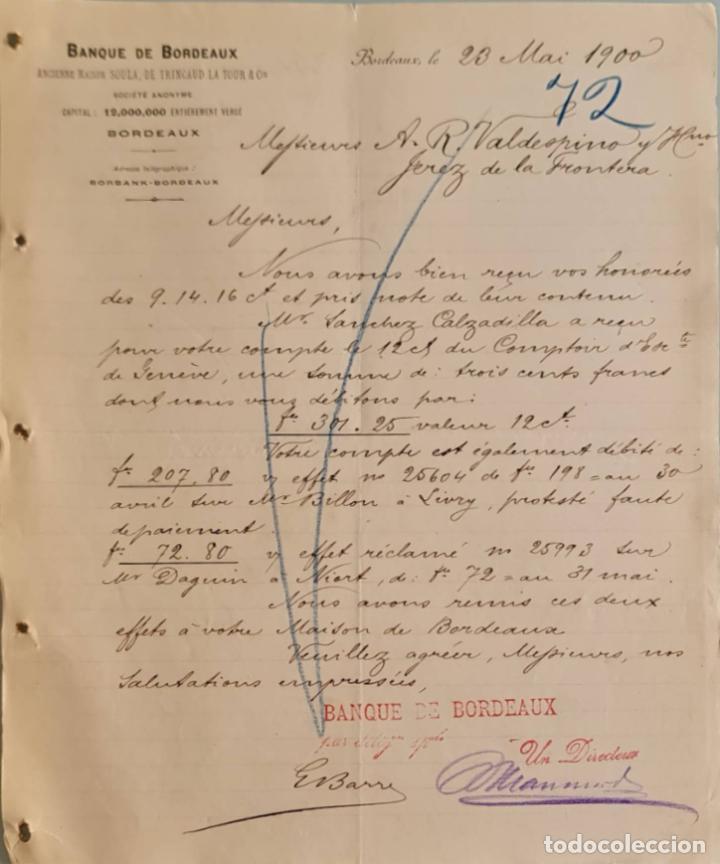 BANQUE DE BORDEAUX
ANCIENNE MAISON SOULA, DE TRINCAUD LA TOUR & Cie
SOCIÉTÉ ANONYME
CAPITAL : 12,000,000 ENTIÈREMENT VERSÉ
BORDEAUX
Adresse télégraphique :
BORBANK-BORDEAUX
Bordeaux, le 23 Mai 1900
72
Messieurs A. R. Valdespino y Hno
Jerez de la Frontera.
Messieurs,
Nous avons bien reçu vos honorées
des 9. 14. 16 ct et pris note de leur contenu.
Mr. Sanchez Calzadilla a reçu
pour votre compte le 12 ct du Comptoir d'Escte
de Genève, une somme de : trois cents francs
dont nous vous débitons par :
frs 301. 25 valeur 12 ct.
Votre compte est également débité de :
frs 207. 80 v/ effet no 25604 de frs 198 = au 30
avril sur Mr Billon à Livry, protesté faute
de paiement.
frs 72. 80 v/ effet réclamé no 25993 sur
Mr Daguin à Niort, de : frs 72 = au 31 mai.
Nous avons remis ces deux
effets à votre Maison de Bordeaux
Veuillez agréer, Messieurs, nos
salutations empressées,
BANQUE DE BORDEAUX
par
Un Directeur
E Barre
todocoleccion
todocoleccion.net